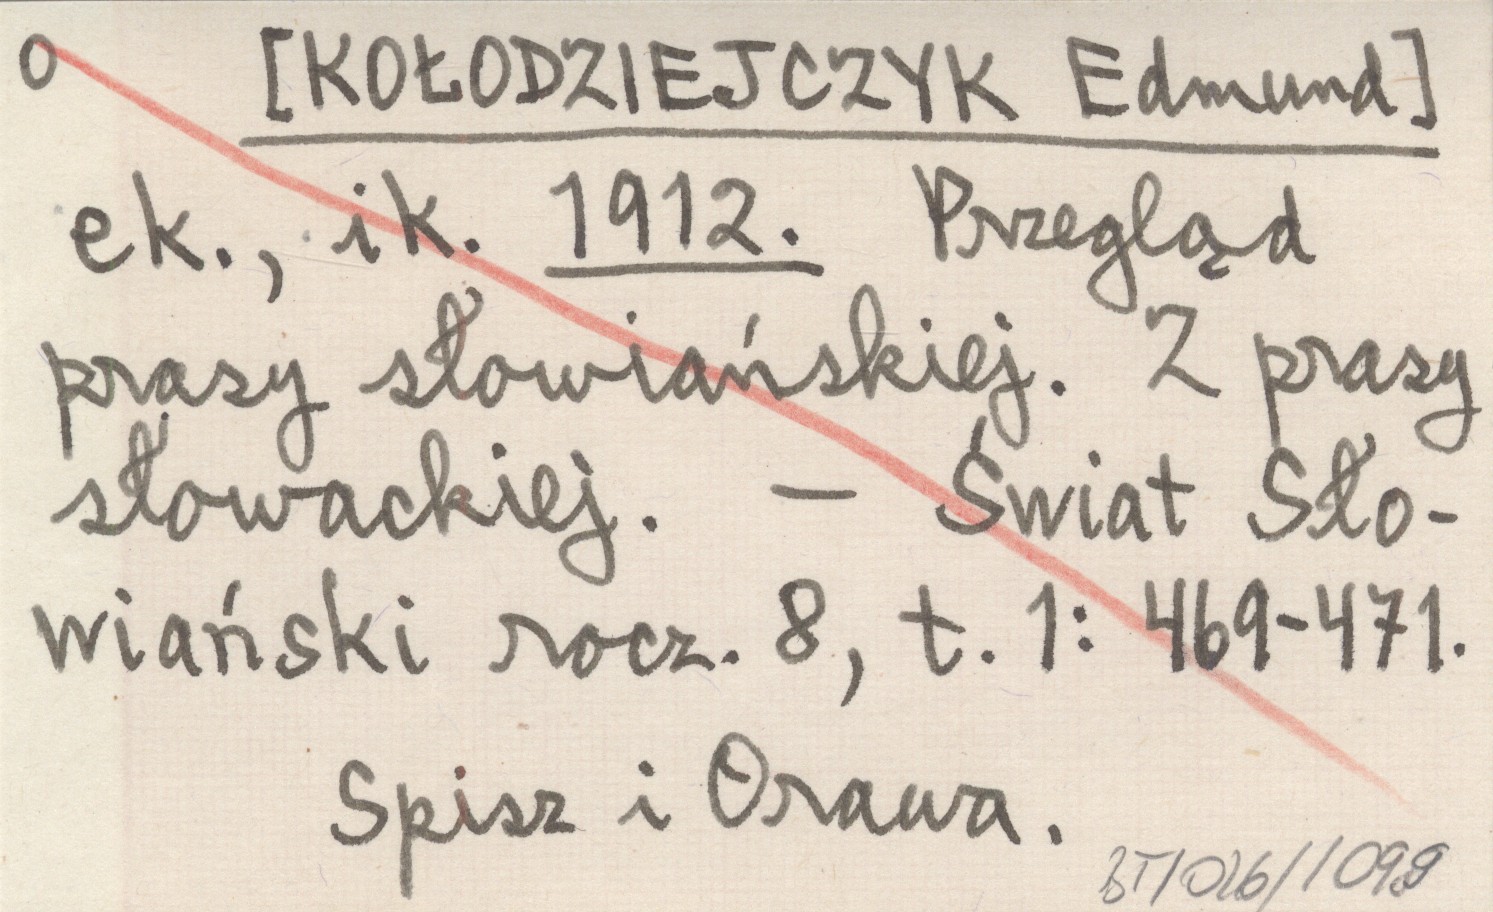 o [KOŁODZIEJCZYK Edmund]
ek., ik. 1912. Przegląd
prasy słowiańskiej. Z prasy
słowackiej. — Świat Sło-
wiański rocz. 8, t. 1: 469-471.
Spisz i Orawa.
BT/026/1099